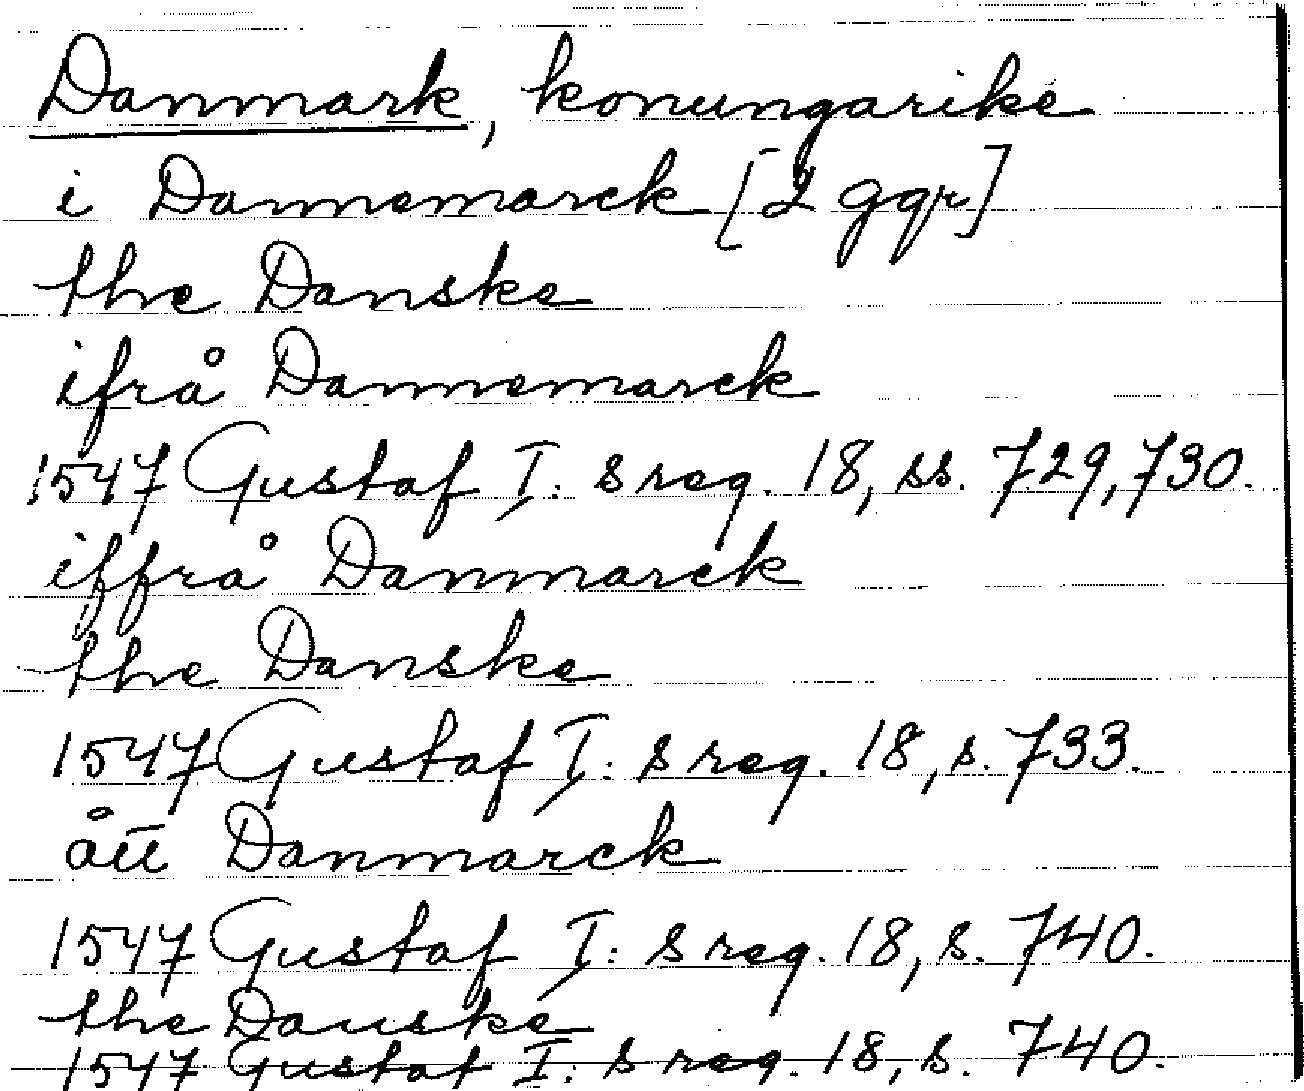 Danmark, konungarike
i Dannemarck [2 ggr]
the Danske
ifrå Dannemarck
1547 Gustaf I:s reg. 18, ss. 729, 730.
iffrå Danmarck
the Danske
1547 Gustaf I:s reg. 18, s. 733.
Danmarck
1547 Gustaf I:s reg. 18, s. 740.
the Danske
1547 Gustaf I:s reg. 18, s. 740.